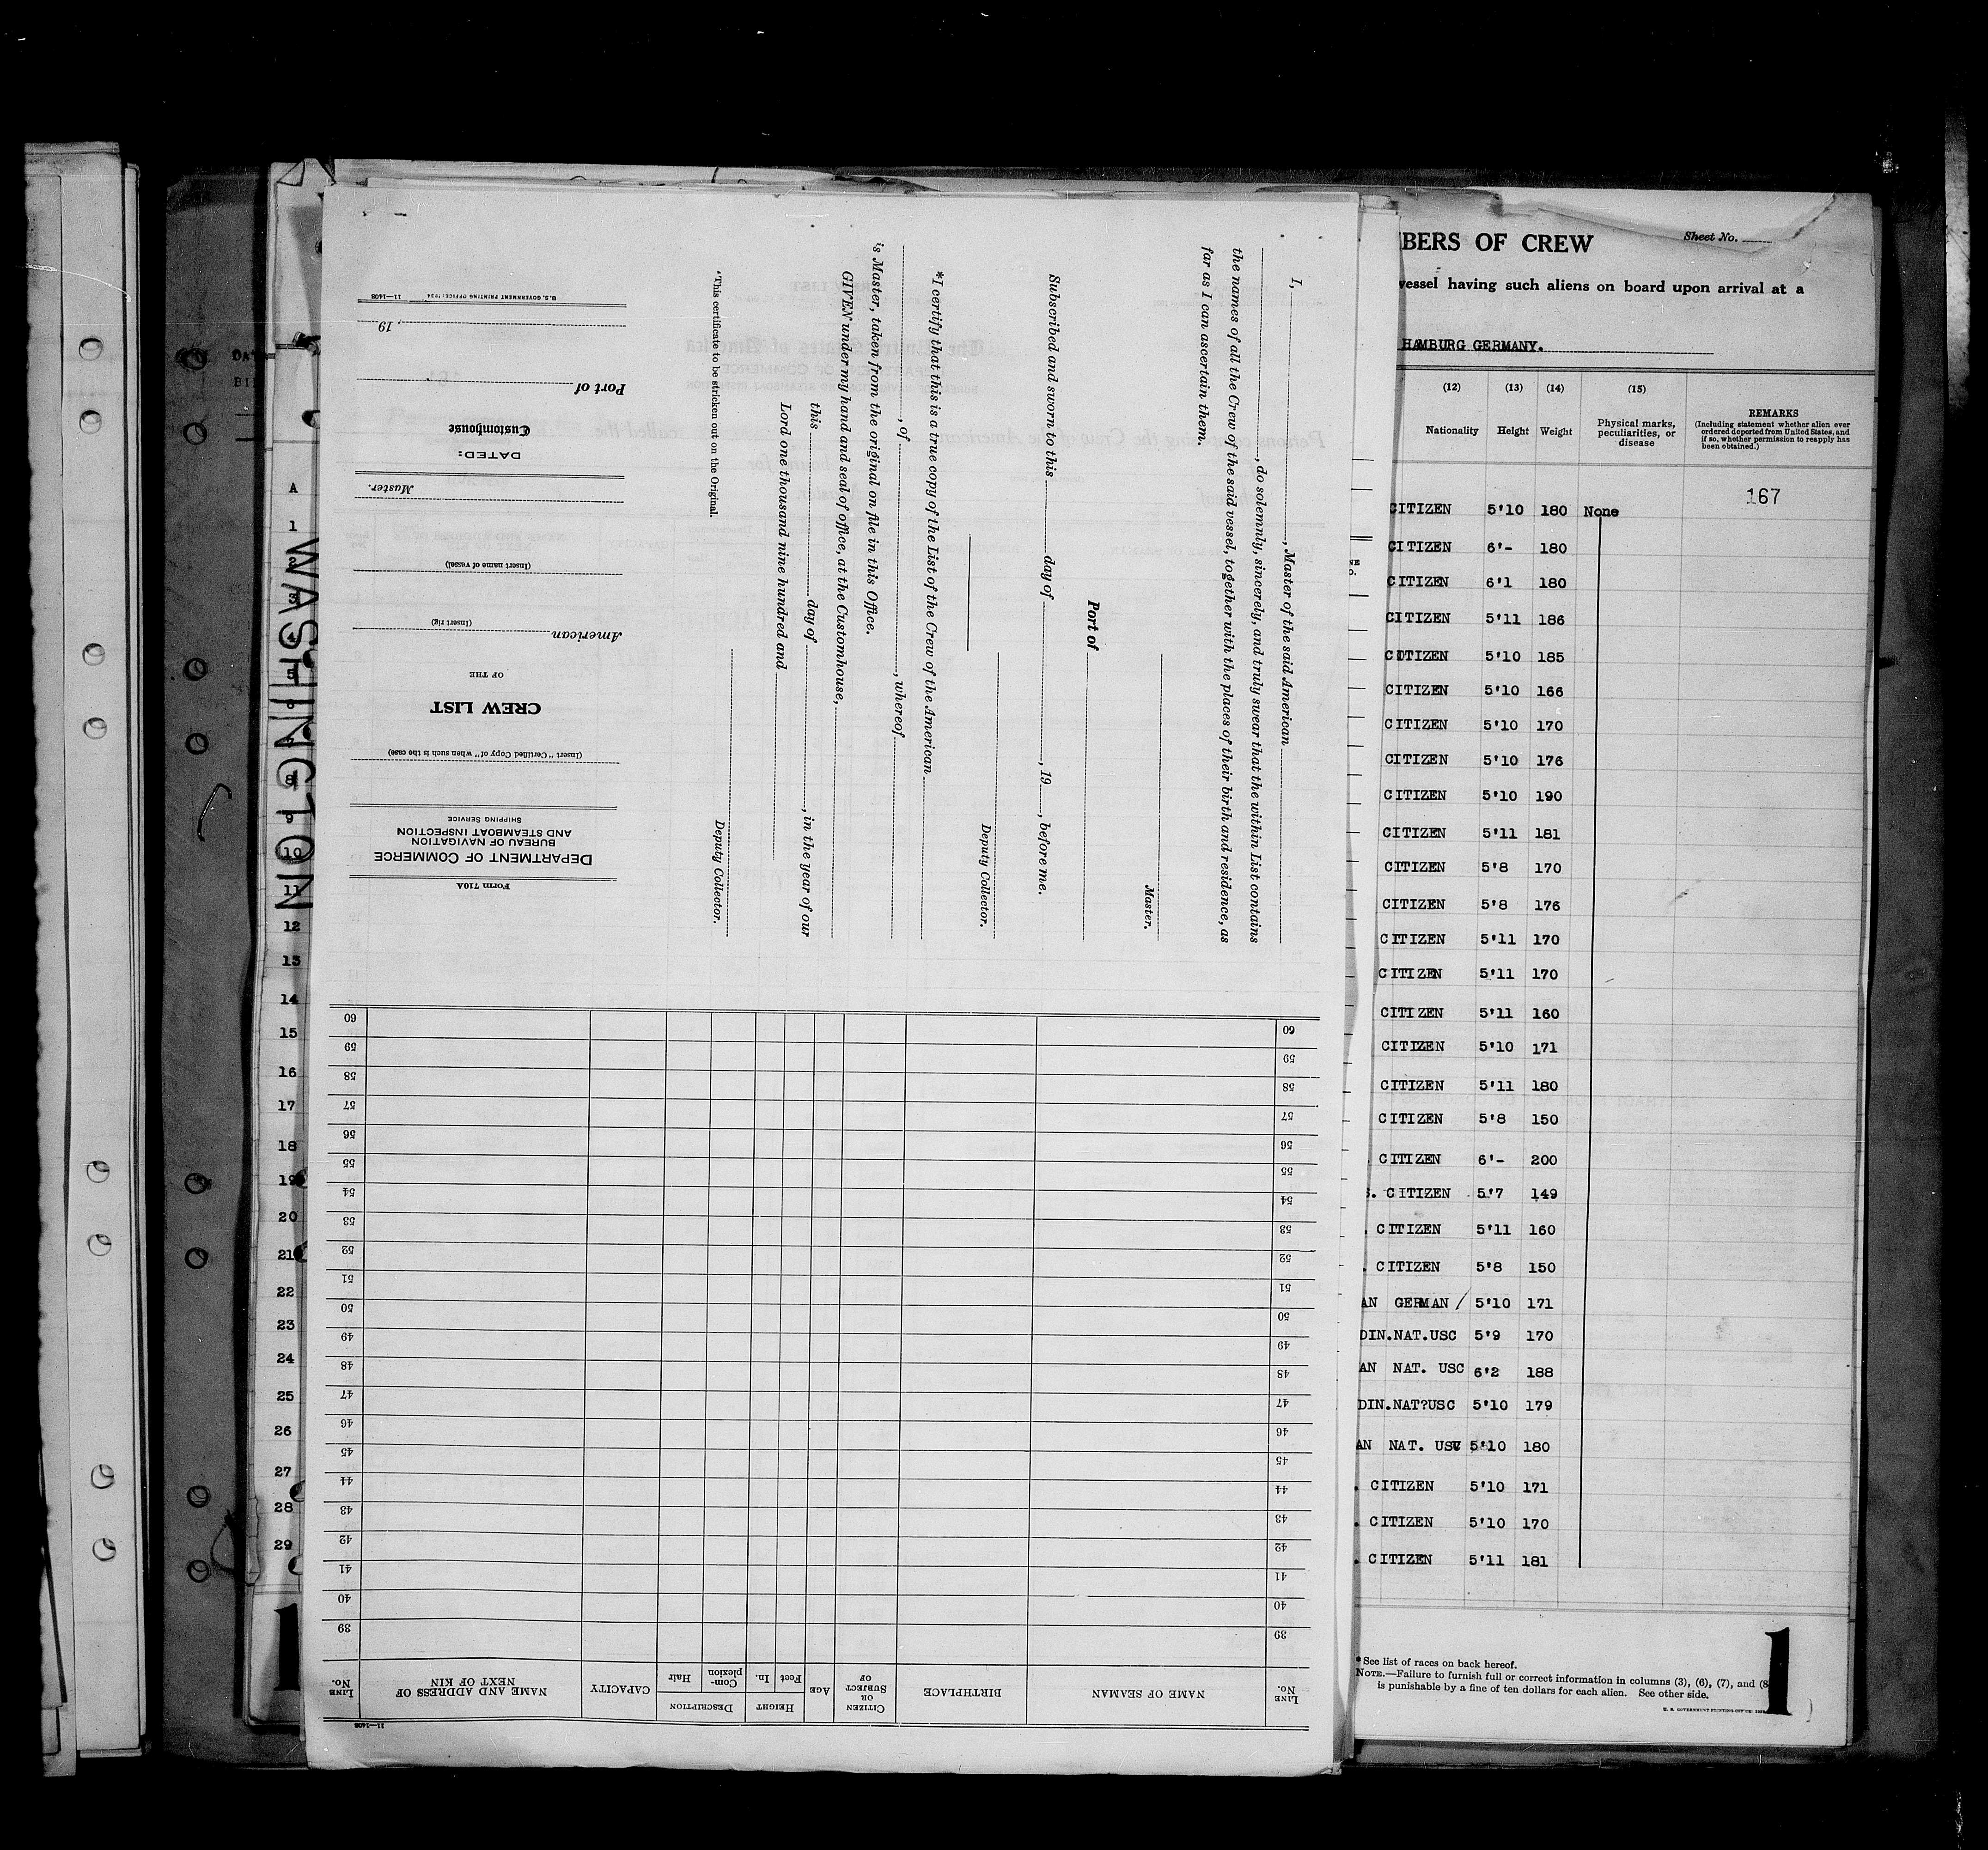 DAT
BI
A
1
2
3
4
5
6
7
8
9
10
11
12
13
14
15
16
17
18
19
20
21
22
23
24
25
26
27
28
29
WASHINGTON
1
Form 710A
DEPARTMENT OF COMMERCE
BUREAU OF NAVIGATION
AND STEAMBOAT INSPECTION
SHIPPING SERVICE
(Insert "Certified Copy of" when such is the case)
CREW LIST
OF THE
American
(Insert rig)
(Insert name of vessel)
Master.
DATED:
Customhouse
Port of
, 19
U.S. GOVERNMENT PRINTING OFFICE: 1934 11—1408
I, , Master of the said American
, do solemnly, sincerely, and truly swear that the within List contains
the names of all the Crew of the said vessel, together with the places of their birth and residence, as
far as I can ascertain them.
Master.
Port of
Subscribed and sworn to this day of , 19 , before me.
Deputy Collector.
*I certify that this is a true copy of the List of the Crew of the American
, of , whereof
is Master, taken from the original on file in this Office.
GIVEN under my hand and seal of office, at the Customhouse,
this day of , in the year of our
Lord one thousand nine hundred and
Deputy Collector.
*This certificate to be stricken out on the Original.
11—1408
LINE No.
NAME OF SEAMAN
BIRTHPLACE
CITIZEN OR SUBJECT OF
AGE
HEIGHT
Feet
In.
DESCRIPTION
Complexion
Hair
CAPACITY
NAME AND ADDRESS OF NEXT OF KIN
LINE No.
39 39
40 40
41 41
42 42
43 43
44 44
45 45
46 46
47 47
48 48
49 49
50 50
51 51
52 52
53 53
54 54
55 55
56 56
57 57
58 58
59 59
60 60
BERS OF CREW
Sheet No.
vessel having such aliens on board upon arrival at a
HAMBURG GERMANY.
(12) (13) (14) (15)
Nationality Height Weight Physical marks, peculiarities, or disease
REMARKS
(Including statement whether alien ever
ordered deported from United States, and
if so, whether permission to reapply has
been obtained.)
167
CITIZEN 5'10 180 None
CITIZEN 6'- 180
CITIZEN 6'1 180
CITIZEN 5'11 186
CITIZEN 5'10 185
CITIZEN 5'10 166
CITIZEN 5'10 170
CITIZEN 5'10 176
CITIZEN 5'10 190
CITIZEN 5'11 181
CITIZEN 5'8 170
CITIZEN 5'8 176
CITIZEN 5'11 170
CITIZEN 5'11 170
CITIZEN 5'11 160
CITIZEN 5'10 171
CITIZEN 5'11 180
CITIZEN 5'8 150
. CITIZEN 6'- 200
S. CITIZEN 5'7 149
. CITIZEN 5'11 160
. CITIZEN 5'8 150
AN GERMAN / 5'10 171
DIN.NAT.USC 5'9 170
AN NAT. USC 6'2 188
DIN.NAT?USC 5'10 179
AN NAT. USC 5'10 180
. CITIZEN 5'10 171
. CITIZEN 5'10 170
. CITIZEN 5'11 181
*See list of races on back hereof.
NOTE.—Failure to furnish full or correct information in columns (3), (6), (7), and (8
is punishable by a fine of ten dollars for each alien. See other side.
1